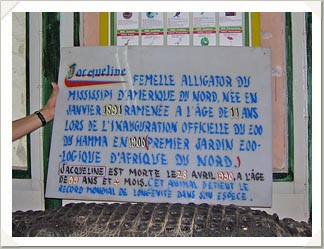 Jacqueline FEMELLE ALLIGATOR DU
MISSISIPI D'AMERIQUE DU NORD, NEE EN
JANVIER 1891 RAMENÉE A L'ÂGE DE 11 ANS
LORS DE L'INAUGURATION OFFICIELLE DU ZOO
DU HAMMA EN 1900 (PREMIER JARDIN ZOO-
LOGIQUE D'AFRIQUE DU NORD.)
JACQUELINE EST MORTE LE 28 AVRIL 1990, A L'ÂGE
DE 99 ANS ET 4 MOIS. CET ANIMAL DETIENT LE
RECORD MONDIAL DE LONGÉVITÉ DANS SON ESPECE.